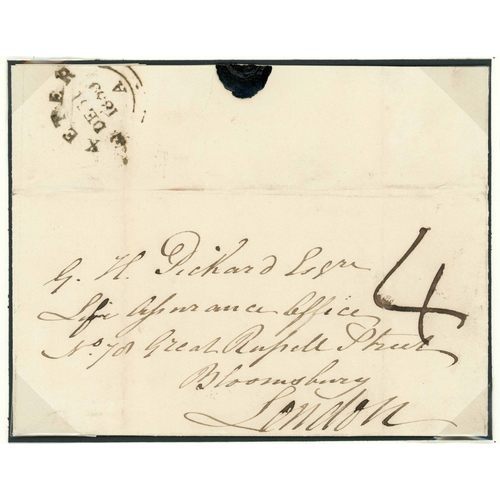 EXETER
DE 31
1839
A
G. H. Pickard Esqre
Life Assurance Office
No. 78 Great Russell Street
Bloomsbury
London
4